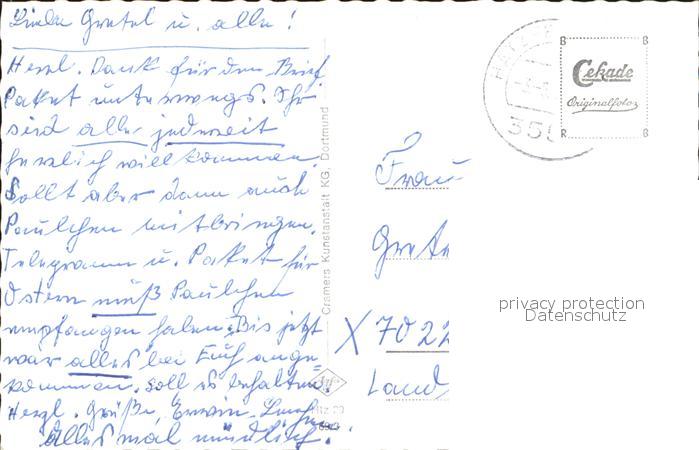 Liebe Gretel u. alle!
Herzl. Dank für den Brief
Paket unterwegs. Ihr
sind alle jederzeit
herzlich willkommen.
Sollt aber dann auch
Paulchen mitbringen.
Telegramm u. Paket für
Ostern muß Paulchen
empfangen haben. Bis jetzt
war alles bei Euch ange-
kommen. soll es behalten.
Herzl. Grüße, Erwin
Alles mal mündlich!
Cramers Kunstanstalt KG. Dortmund
355
Cekade
Originalfoto
Frau
Grete
X 7022
Land
privacy protection
Datenschutz